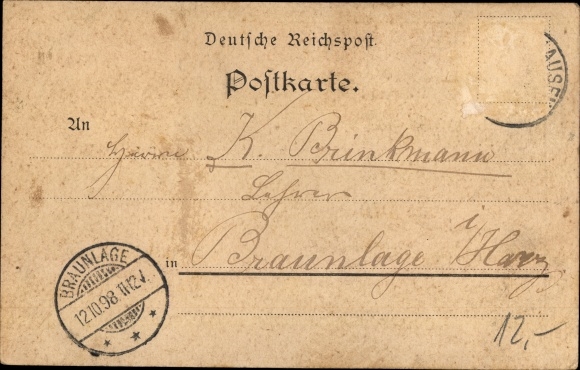 Deutsche Reichspost.
Postkarte.
AUSEN
An
Herrn K. Brinkmann
Lehrer
in Braunlage i/Harz
BRAUNLAGE
12.10.98. 11-12V.
* * *
12,-